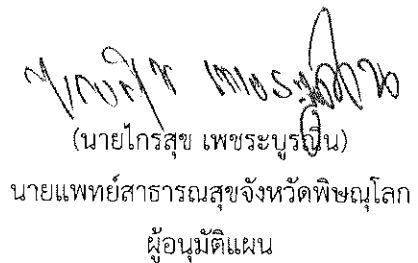 (นายไกรสุข เพชระบูรณิน)
นายแพทย์สาธารณสุขจังหวัดพิษณุโลก
ผู้อนุมัติแผน